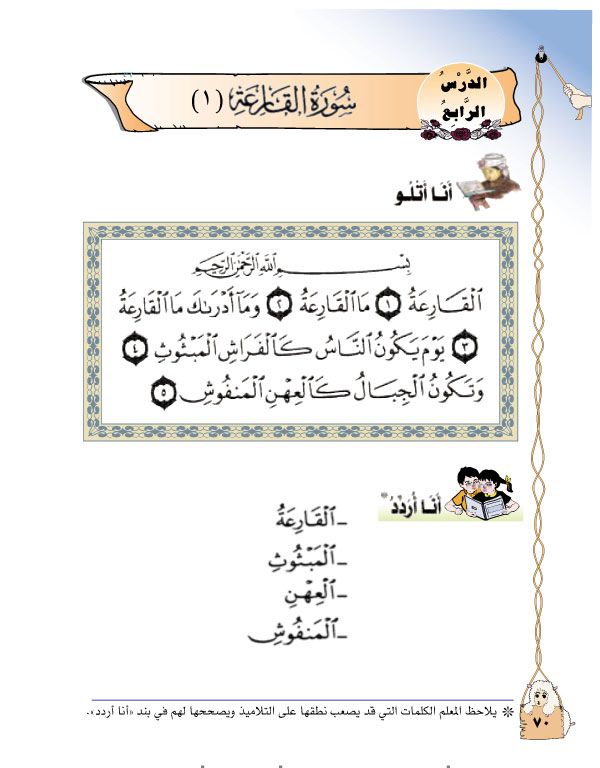 الدَّرْسُ
الرَّابِعُ
سُورَةُ القَارِعَةِ (١)
أَنَا أَتْلُو
بِسْمِ ٱللَّهِ ٱلرَّحْمَٰنِ ٱلرَّحِيمِ
ٱلْقَارِعَةُ ١ مَا ٱلْقَارِعَةُ ٢ وَمَآ أَدْرَىٰكَ مَا ٱلْقَارِعَةُ
٣ يَوْمَ يَكُونُ ٱلنَّاسُ كَٱلْفَرَاشِ ٱلْمَبْثُوثِ ٤
وَتَكُونُ ٱلْجِبَالُ كَٱلْعِهْنِ ٱلْمَنفُوشِ ٥
أَنَا أُرَدِّدُ *
- ٱلْقَارِعَةُ
- ٱلْمَبْثُوثِ
- ٱلْعِهْنِ
- ٱلْمَنفُوشِ
* يلاحظ المعلم الكلمات التي قد يصعب نطقها على التلاميذ ويصححها لهم في بند «أنا أردد».
٧٠